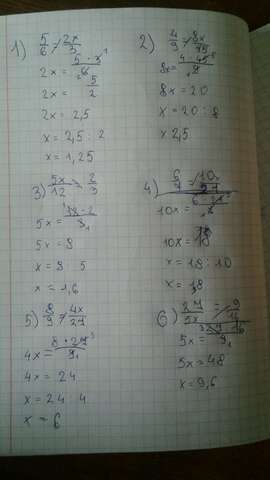 1) 5/6 = 2x/3
2x = 5·3/6
2x = 5/2
2x = 2,5
x = 2,5 : 2
x = 1,25
2) 4/9 = 8x/45
8x = 4·45/9
8x = 20
x = 20 : 8
x 2,5
3) 5x/12 = 2/3
5x =
5x = 8
x = 8 5
x = 1,6
4) 6/7 =
10x =
10x = 18
x = 18 : 10
x =
5) 8/9 = 4x/27
4x = 8·27/9
4x = 24
x = 24 : 4
x = 6
6) 27/5x = 9/16
5x =
5x = 48
x = 9,6